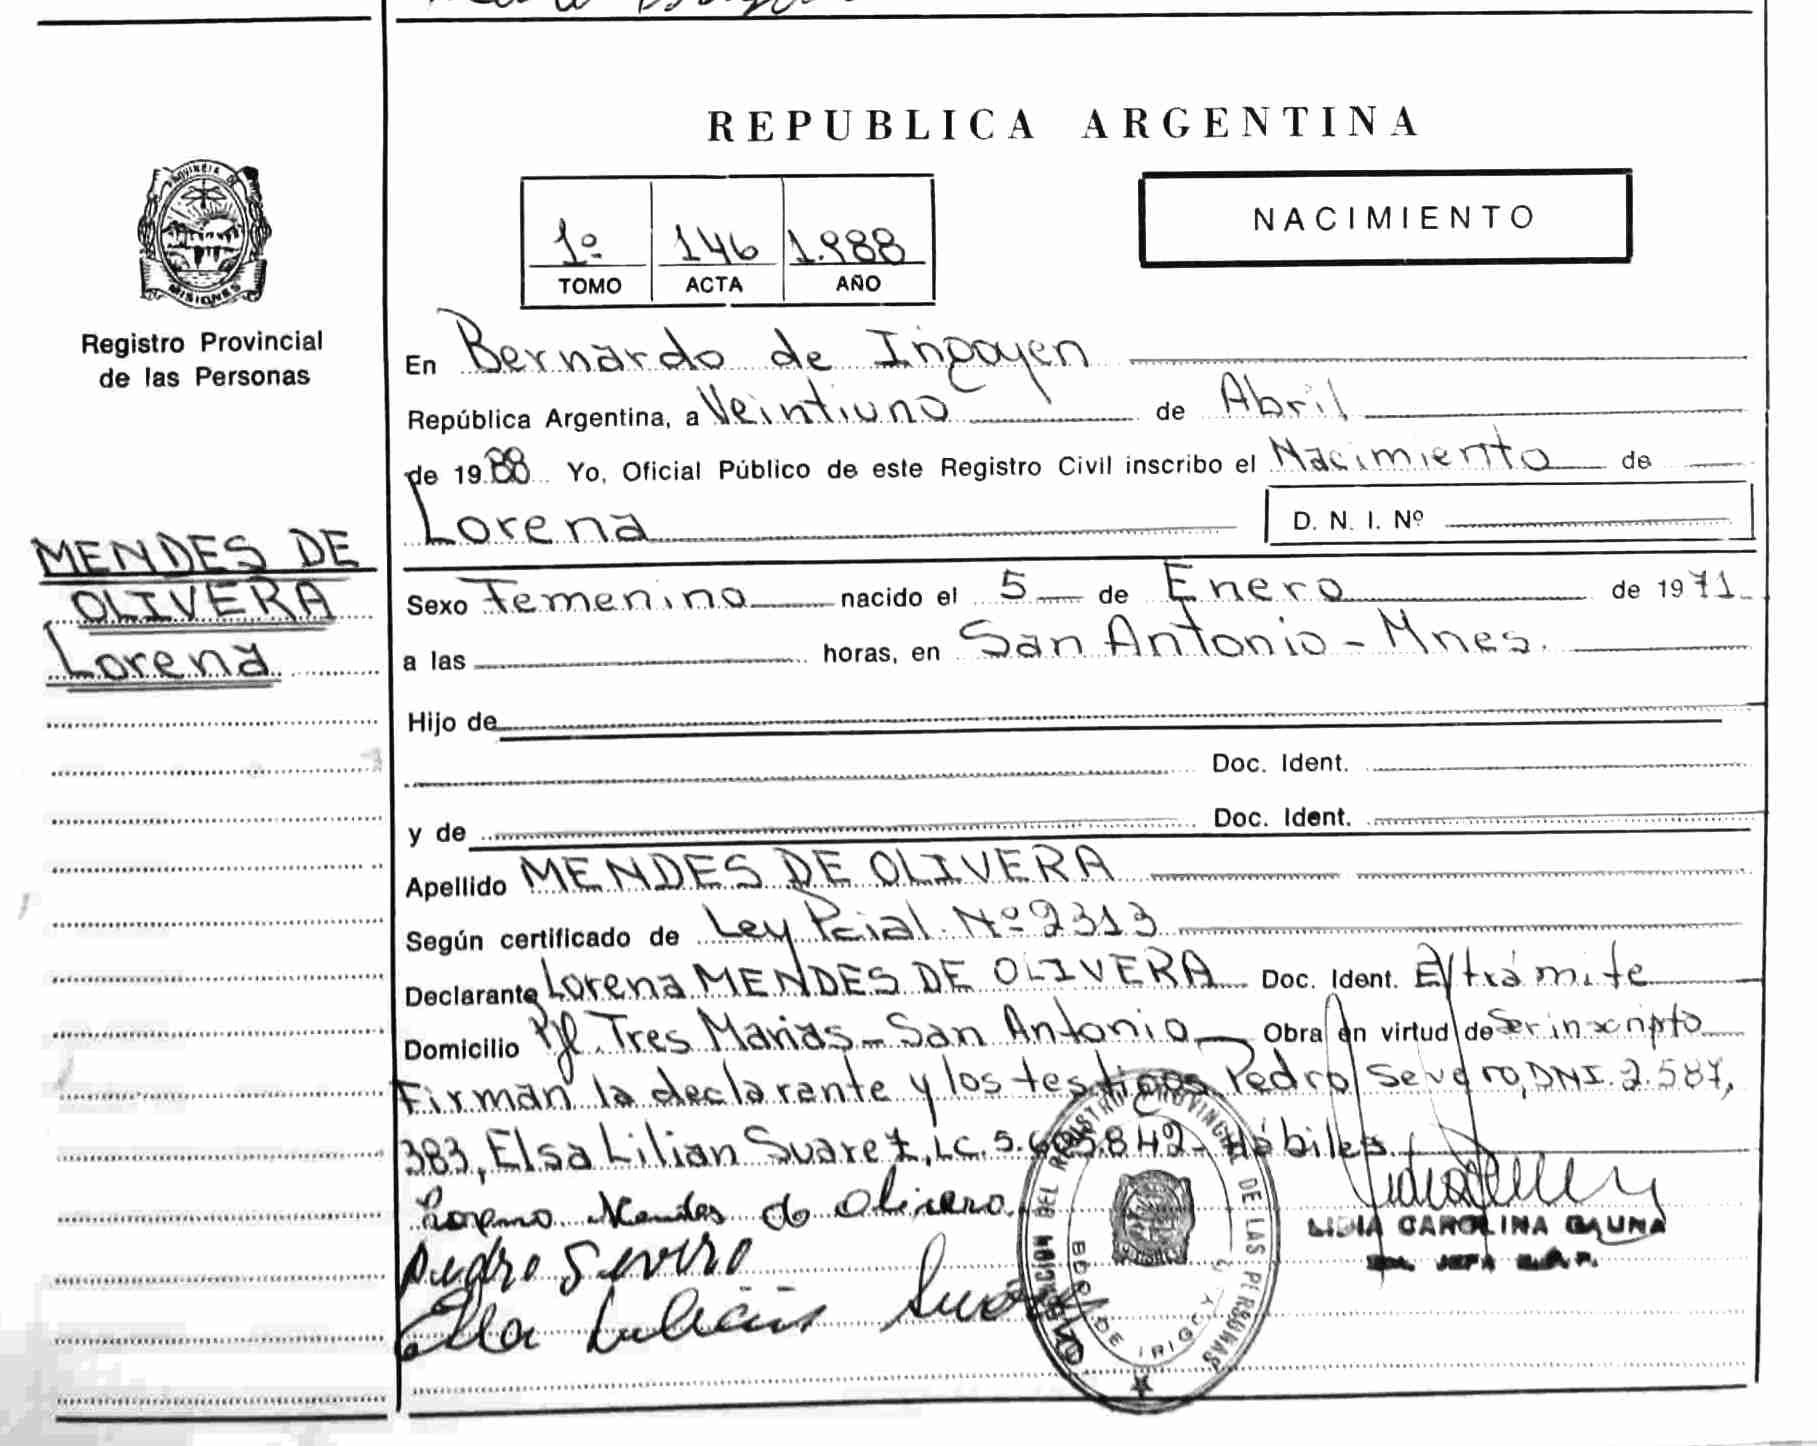 REPUBLICA ARGENTINA
PROVINCIA DE
MISIONES
Registro Provincial
de las Personas
1º 146 1.988
TOMO ACTA AÑO
NACIMIENTO
En Bernardo de Irigoyen
República Argentina, a Veintiuno de Abril
de 1988 Yo, Oficial Público de este Registro Civil inscribo el Nacimiento de
Lorena
D. N. I. Nº
MENDES DE
OLIVERA
Lorena
Sexo Femenino nacido el 5 de Enero de 1971
a las horas, en San Antonio - Mnes.
Hijo de
Doc. Ident.
y de Doc. Ident.
Apellido MENDES DE OLIVERA
Según certificado de Ley Pcial. Nº 2313
Declarante Lorena MENDES DE OLIVERA Doc. Ident. E/trámite
Domicilio Pje. Tres Marias - San Antonio Obra en virtud de Ser inscripto
Firman la declarante y los testigos Pedro Severo, DNI. 2.587,
383, Elsa Lilian Suarez, LC. 5.605.842 - Hábiles.
Lorena Mendes de Olivera
Pedro Severo
Elsa Lilian
LIDIA CAROLINA GAUNA
JEFA
DEL REGISTRO PROVINCIAL DE LAS PERSONAS
BDO. DE IRIGOYEN